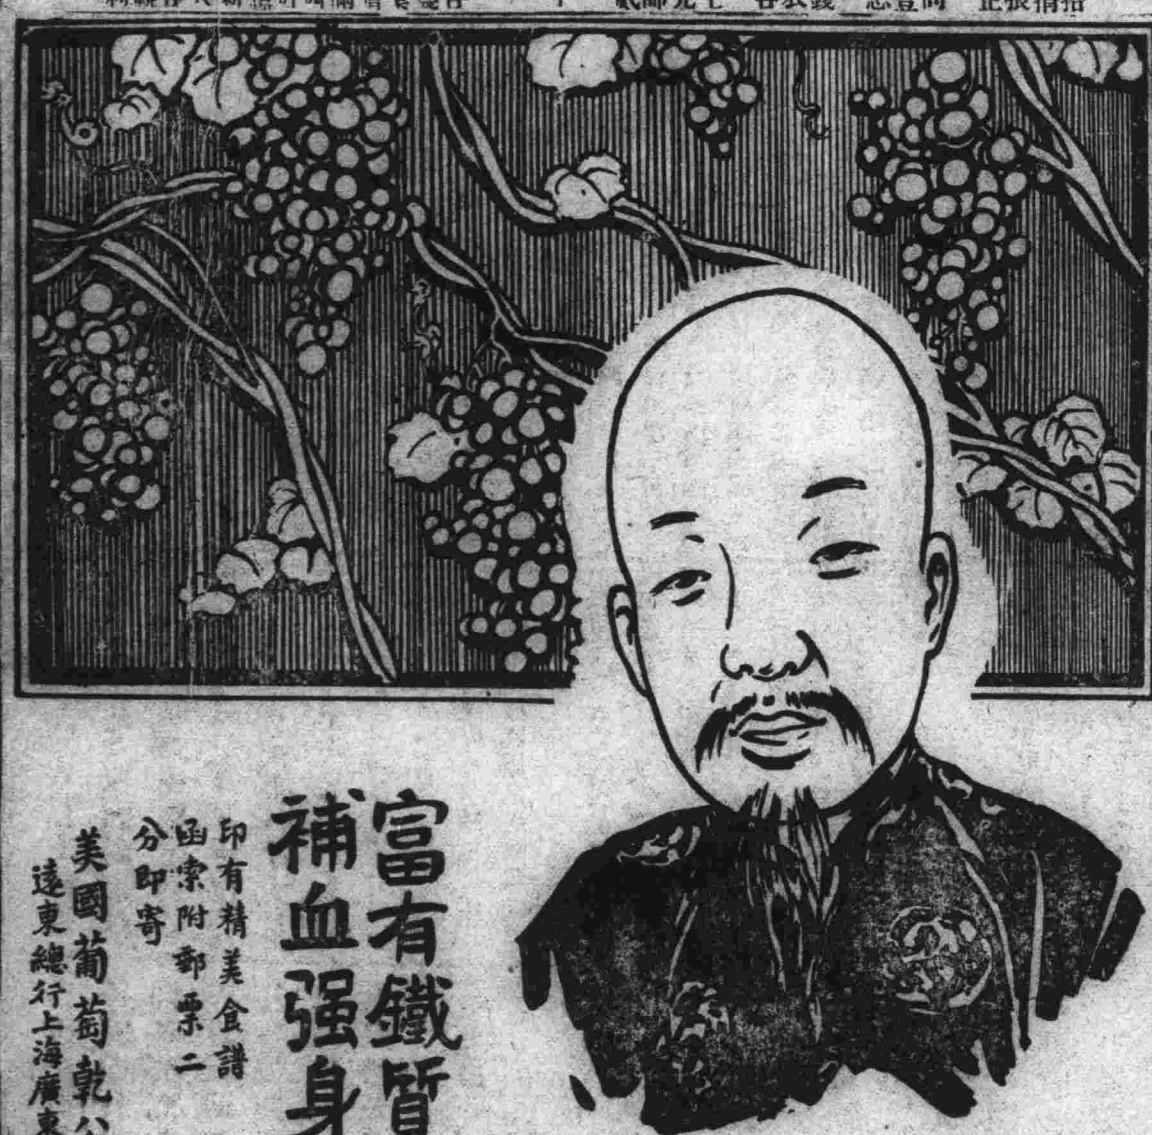 富有鐵質
補血强身
印有精美食譜
函索附郵票二
分即寄
美國葡萄乾公
遠東總行上海廣東